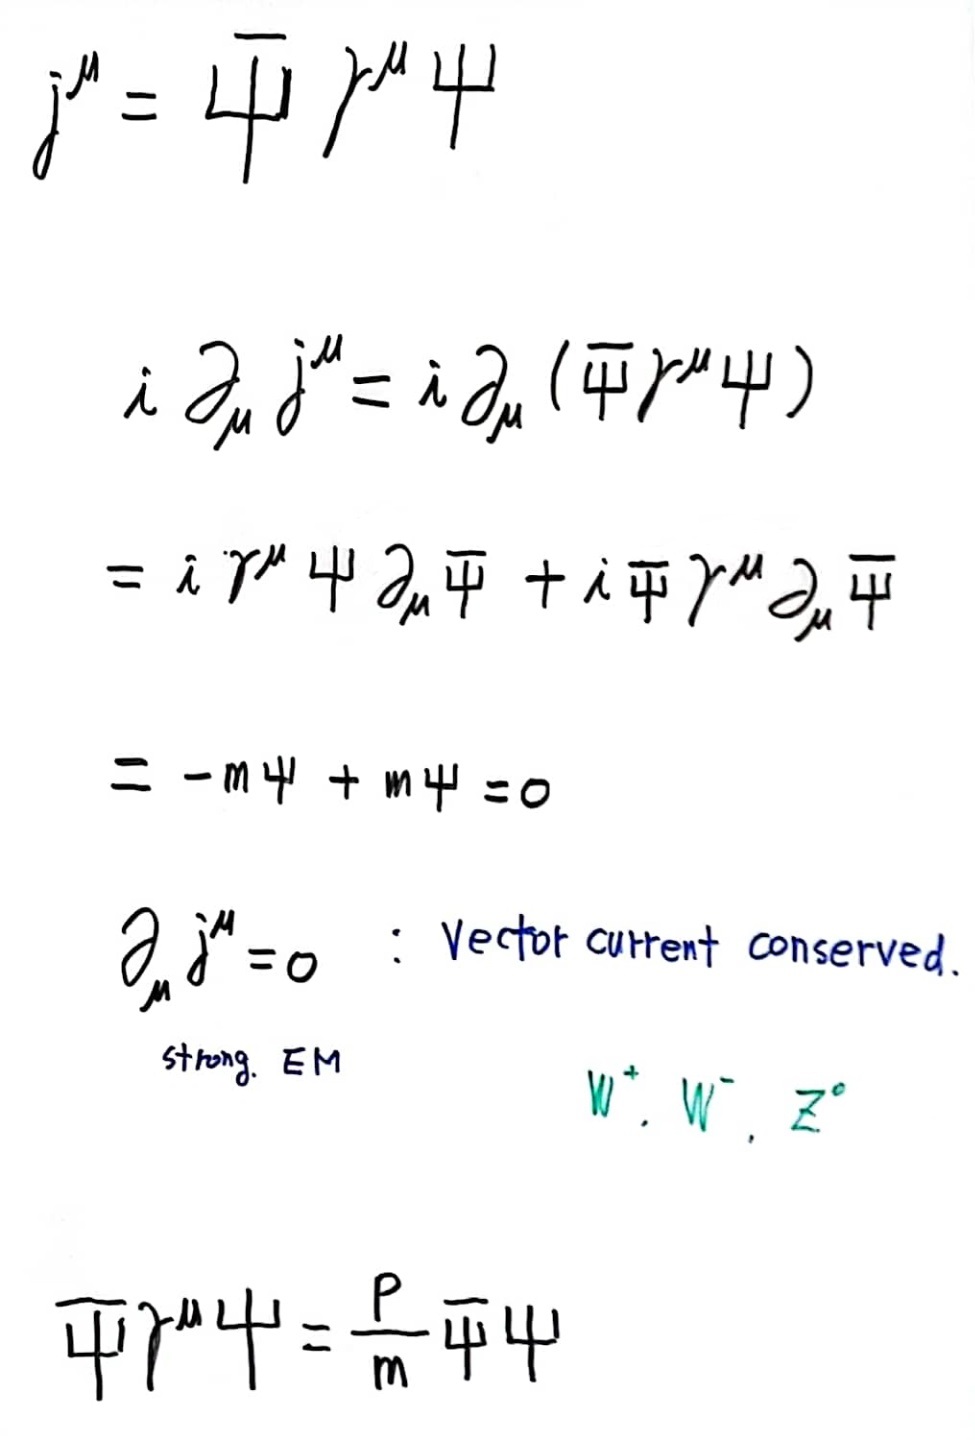 j^μ = Ψ̅ γ^μ Ψ
i ∂_μ j^μ = i ∂_μ (Ψ̅ γ^μ Ψ)
= i γ^μ Ψ ∂_μ Ψ̅ + i Ψ̅ γ^μ ∂_μ Ψ̅
= -mΨ + mΨ = 0
∂_μ j^μ = 0 : Vector current conserved.
strong. EM
W⁺, W⁻, Z⁰
Ψ̅ γ^μ Ψ = P/m Ψ̅ Ψ